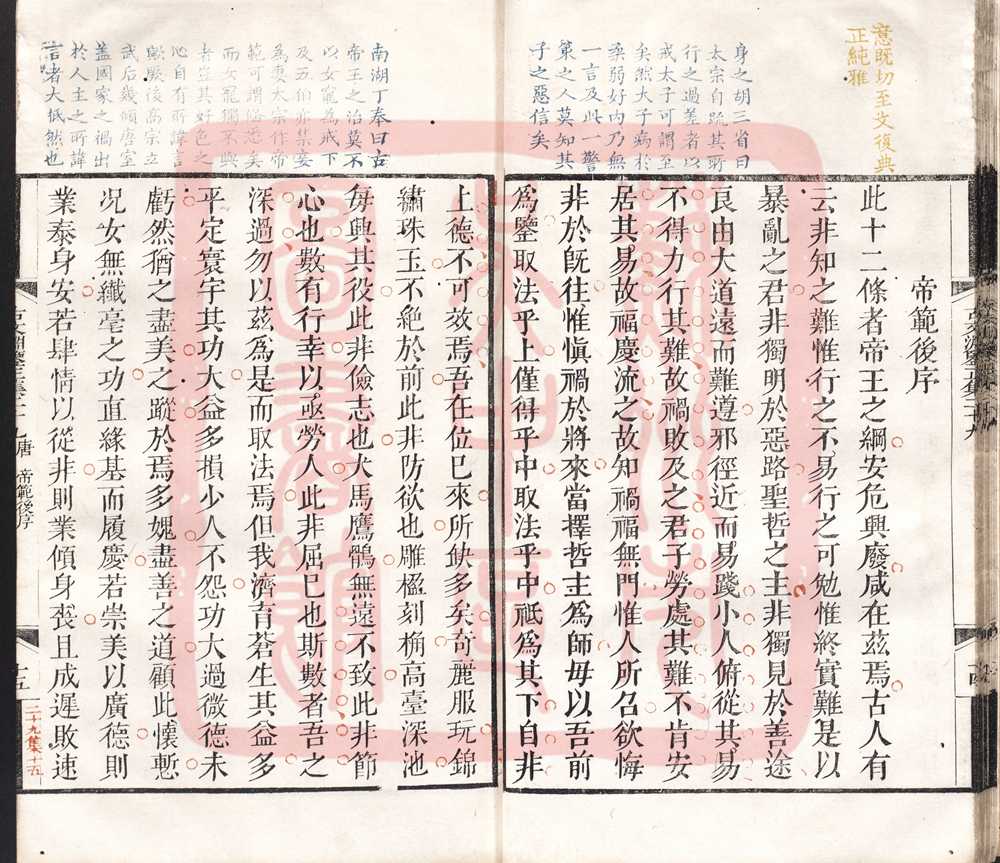 意既切至文復典
正純雅
身之胡三省曰
太宗自疏其所
行之過差者以
戒太子可謂至
矣然太子病於
柔弱好內乃無
一言及此一警
策之人莫知其
子之惡信矣
帝範後序
此十二條者帝王之綱安危興廢咸在茲焉古人有
云非知之難惟行之不易行之可勉惟終實難是以
暴亂之君非獨明於惡路聖哲之主非獨見於善途
良由大道遠而難遵邪徑近而易踐小人俯從其易
不得力行其難故禍敗及之君子勞處其難不肯安
居其易故福慶流之故知禍福無門惟人所召欲悔
非於旣往惟愼禍於將來當擇哲主爲師毋以吾前
爲鑒取法乎上僅得乎中取法乎中祇爲其下自非
南湖丁奉曰古
帝王之治莫不
以女寵為戒下
及五伯亦禁妾
為妻太宗作帝
範可謂備悉矣
而女寵獨不與
者豈其好色之
心自有所諱言
歟厥後高宗立
武后幾傾唐室
蓋國家之禍出
於人主之所諱
言者大抵然也
上德不可效焉吾在位已來所缺多矣奇麗服玩錦
繡珠玉不絕於前此非防欲也雕楹刻桷高臺深池
每興其役此非儉志也犬馬鷹鶻無遠不致此非節
心也數有行幸以亟勞人此非屈己也斯數者吾之
深過勿以茲爲是而取法焉但我濟育蒼生其益多
平定寰宇其功大益多損少人不怨功大過微德未
虧然猶之盡美之蹤於焉多媿盡善之道顧此懷慙
況女無纖毫之功直緣基而履慶若崇美以廣德則
業泰身安若肆情以從非則業傾身喪且成遲敗速
唐 帝範後序
十五
二十九集 十五